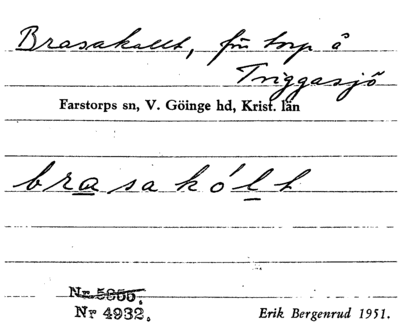 Brasakullt, för torp å
Triggasjö
Farstorps sn, V. Göinge hd, Krist. län
brasakólt
Nr 5866.
Nr 4932.
Erik Bergenrud 1951.